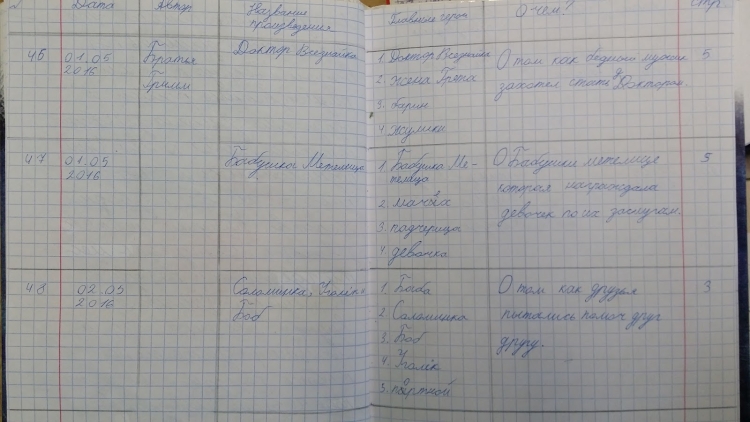 Дата
Автор
Название
произведения
Главные герои
О чем?
стр.
46
01.05
2016
Братья
Гримм
Доктор Всезнайка
1. Доктор Всезнайка
2. Жена Грета
3. барин
4. жулики
О том как бедного мужик
захотел стать Доктором.
5
47
01.05
2016
Бабушка Метелица
1. Бабушка Ме-
телица
2. мачеха
3. падчерица
4. девочка
О Бабушки метелице
которая награждала
девочек по их заслугам.
5
48
02.05
2016
Соломинка, Уголёк и
Боб
1. Баба
2. Соломинка
3. Боб
4. Уголік
5. портной
О том как друзья
пытались помоч друг
другу.
3